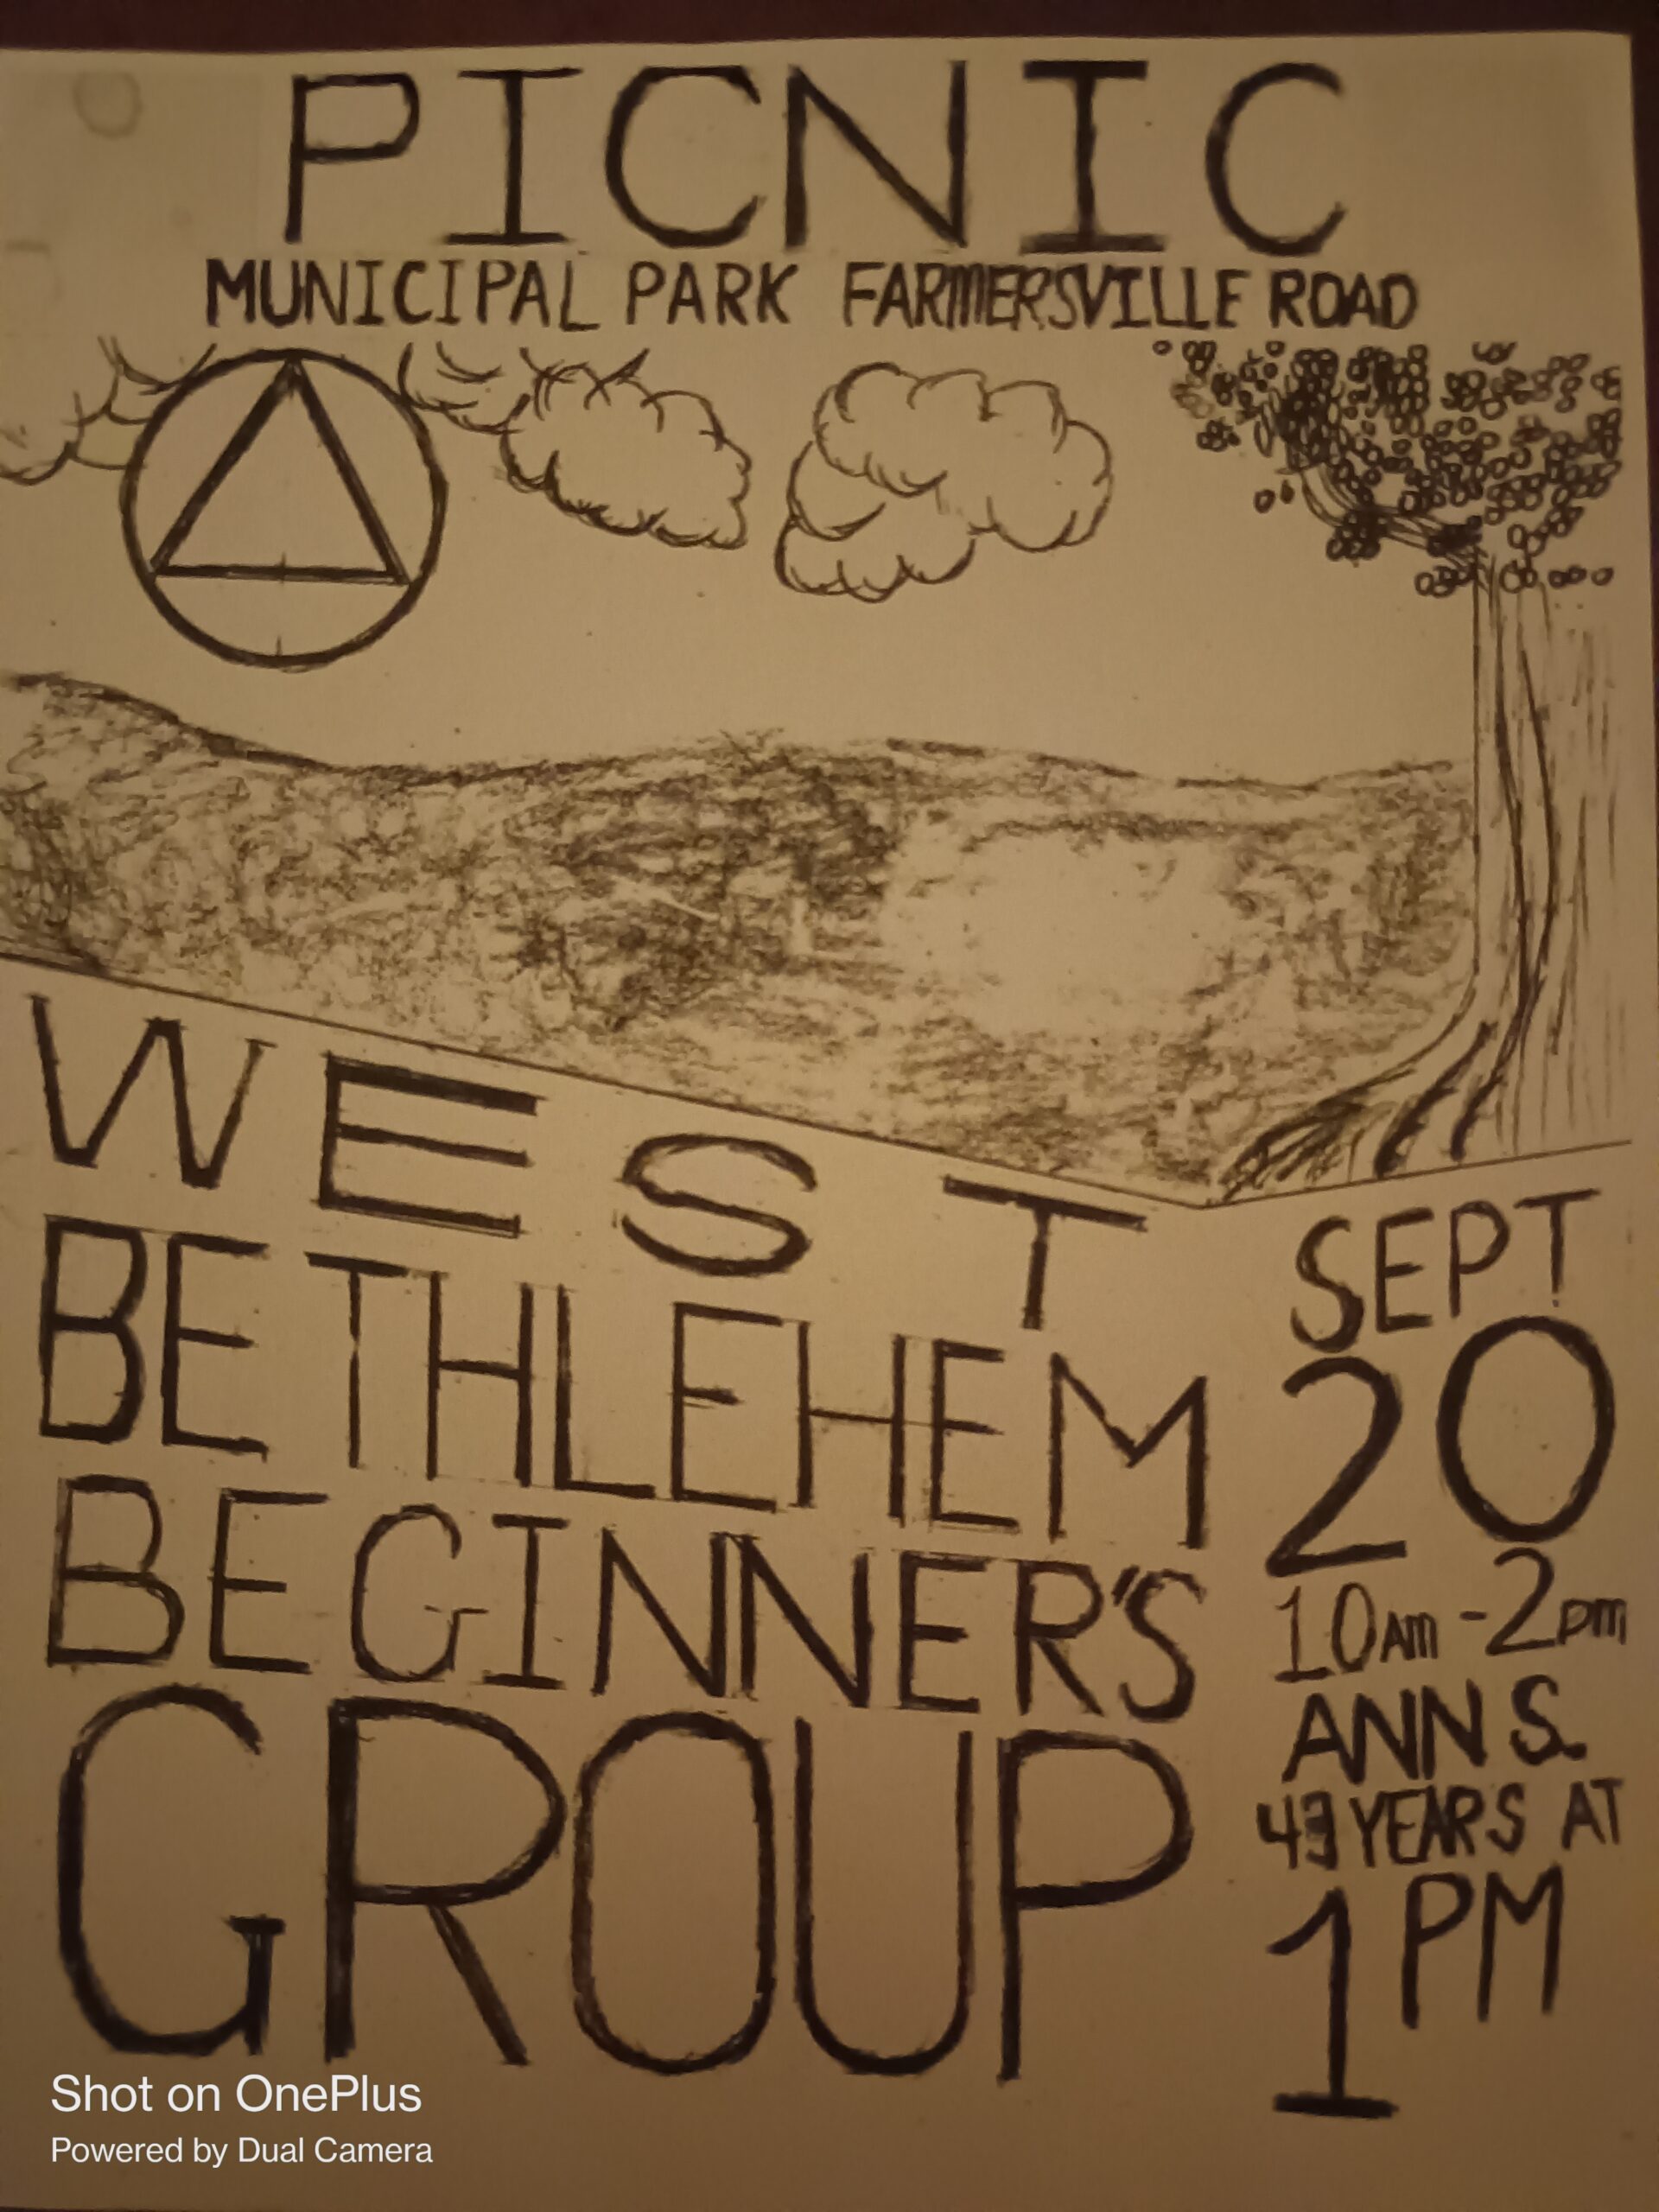 PICNIC
MUNICIPAL PARK FARMERSVILLE ROAD
WEST
BETHLEHEM
BEGINNER'S
GROUP
SEPT
20
10AM - 2PM
ANN S.
43 YEARS AT
1 PM
Shot on OnePlus
Powered by Dual Camera